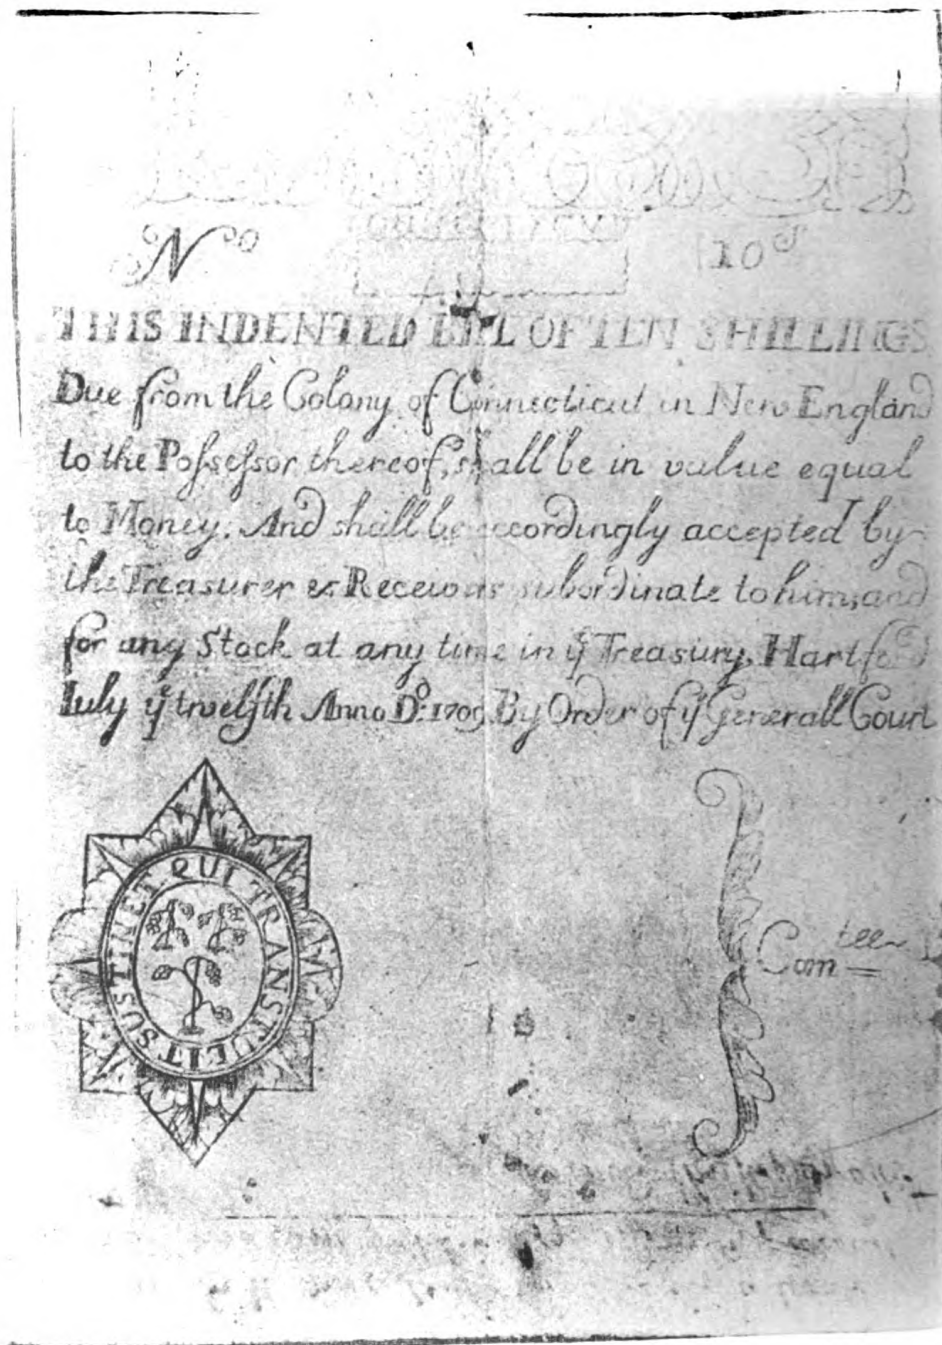 No
10s
THIS INDENTED BILL OF TEN SHILLINGS
Due from the Colony of Connecticut in New England
to the Poſseſsor thereof, shall be in value equal
to Money; And shall be accordingly accepted by
the Treasurer & Receivers subordinate to him, and
for any Stock at any time in yͤ Treasury, Hartford
Iuly yͤ twelfth Anno Dº: 1709 By Order of yͤ Generall Court
SUSTINET QUI TRANSTULIT
Comtee